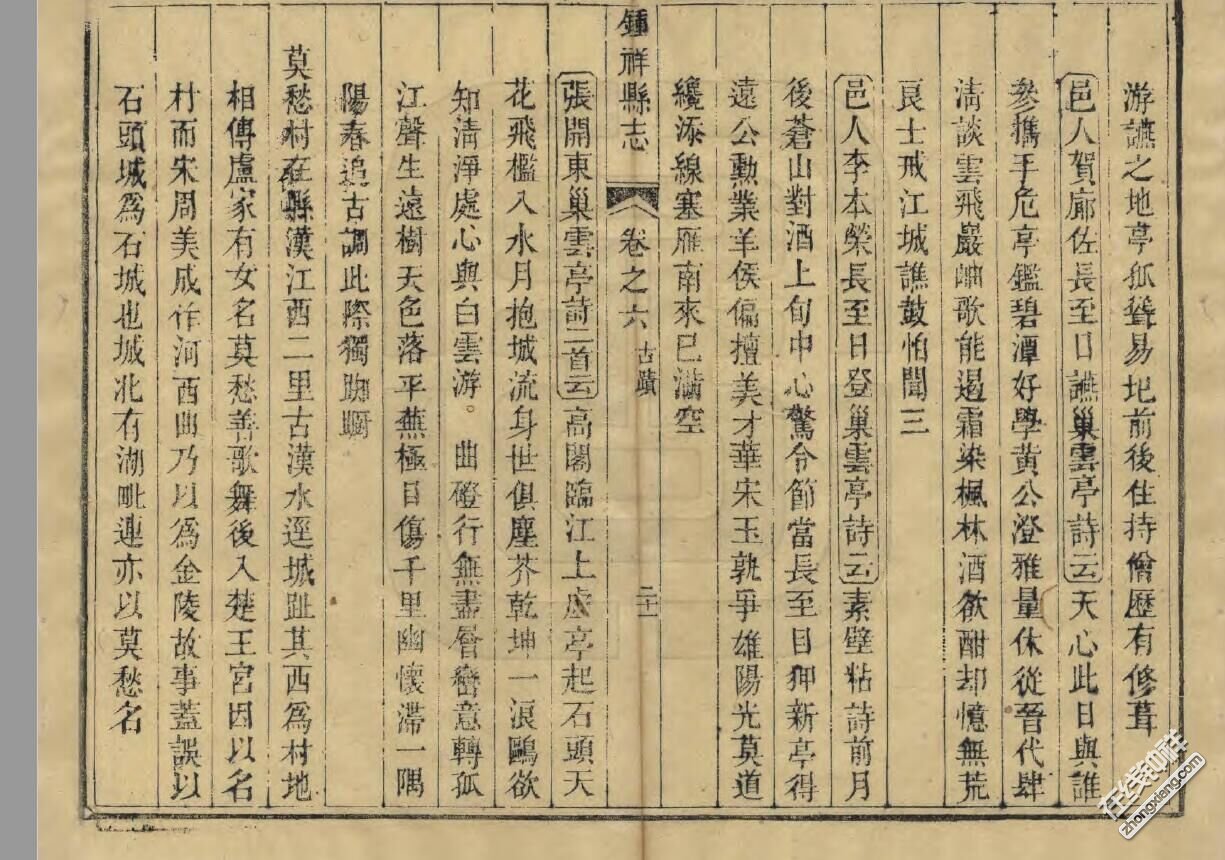 游讌之地亭孤聳易圮前後住持僧歷有修葺
邑人賀廊佐長至日讌巢雲亭詩云天心此日與誰
參攜手危亭鑑碧潭好學黃公澄雅量休從晉代肆
清談雲飛巖岫歌能遏霜染楓林酒欲酣却憶無荒
良士戒江城譙鼓怕聞三
邑人李本榮長至日登巢雲亭詩云素壁粘詩前月
後蒼山對酒上旬中心驚令節當長至目狎新亭得
遠公勳業羊侯偏擅美才華宋玉孰爭雄陽光莫道
纔添線塞雁南來已滿空
鍾祥縣志
卷之六
古蹟
二十一
張開東巢雲亭詩二首云高閣臨江上虛亭起石頭天
花飛檻入水月抱城流身世俱塵芥乾坤一浪鷗欲
知清淨處心與白雲游。曲磴行無盡層巒意轉孤
江聲生遠樹天色落平蕪極目傷千里幽懷滯一隅
陽春追古調此際獨踟躕
莫愁村在縣漢江西二里古漢水逕城趾其西為村地
相傳盧家有女名莫愁善歌舞後入楚王宮因以名
村而宋周美成作河西曲乃以爲金陵故事蓋誤以
石頭城爲石城也城北有湖毗連亦以莫愁名
在线钟祥
zhongxiang.com